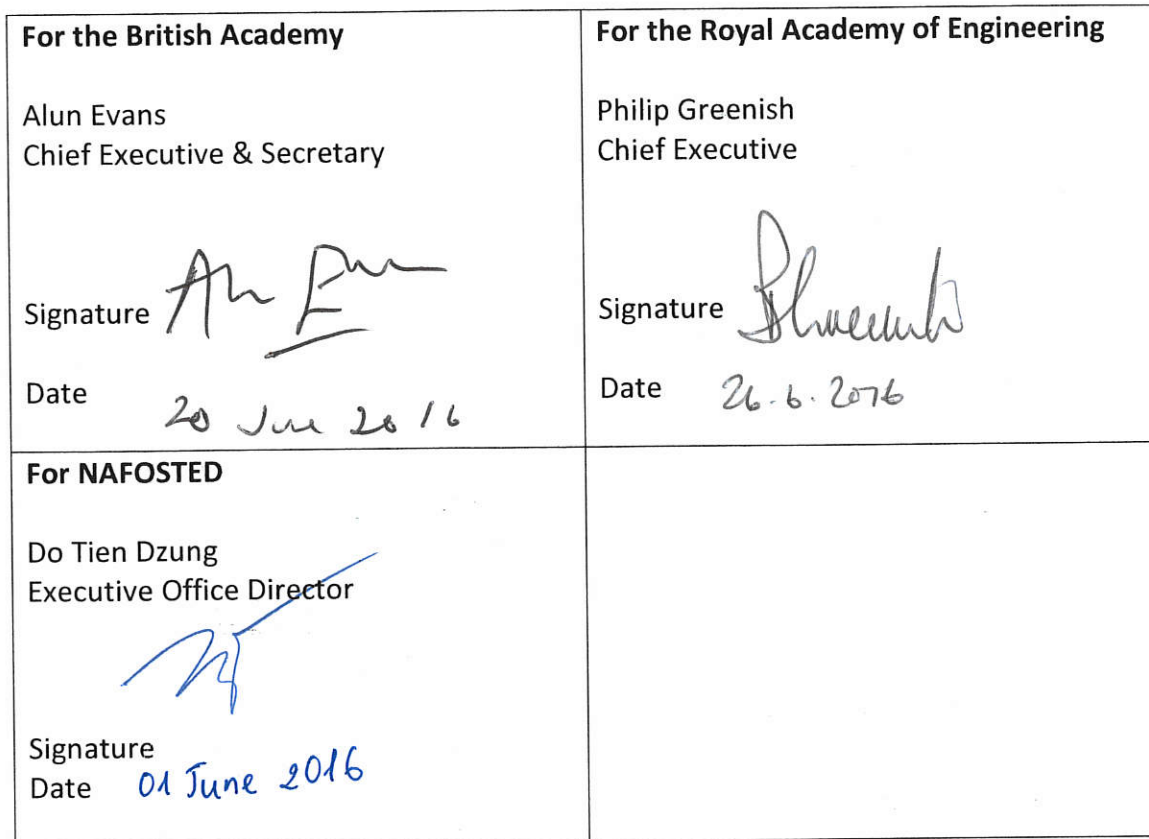 For the British Academy
Alun Evans
Chief Executive & Secretary
Signature
Date 20 June 2016
For the Royal Academy of Engineering
Philip Greenish
Chief Executive
Signature
Date 26.6.2016
For NAFOSTED
Do Tien Dzung
Executive Office Director
Signature
Date 01 June 2016